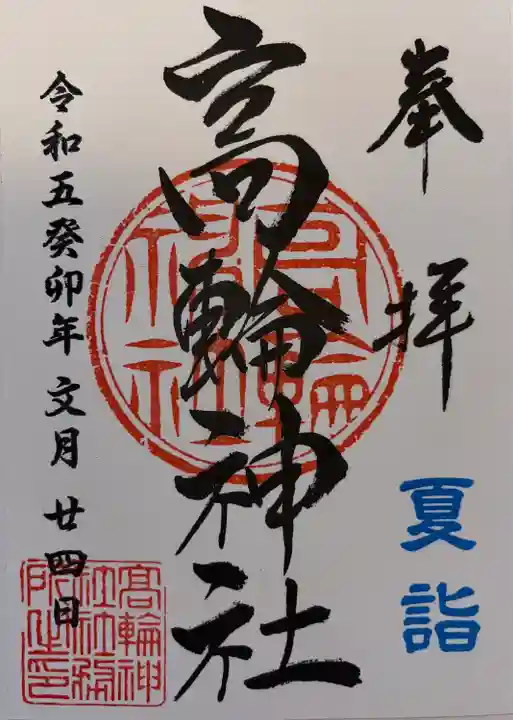 奉拝
夏詣
高輪神社
高輪神社
令和五癸卯年文月廿四日
高輪神社社務所之印